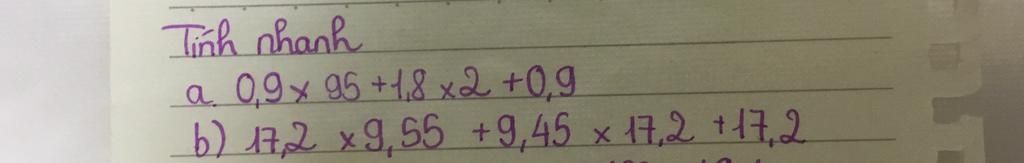 Tính nhanh
a. 0,9 x 95 + 1,8 x 2 + 0,9
b) 17,2 x 9,55 + 9,45 x 17,2 + 17,2